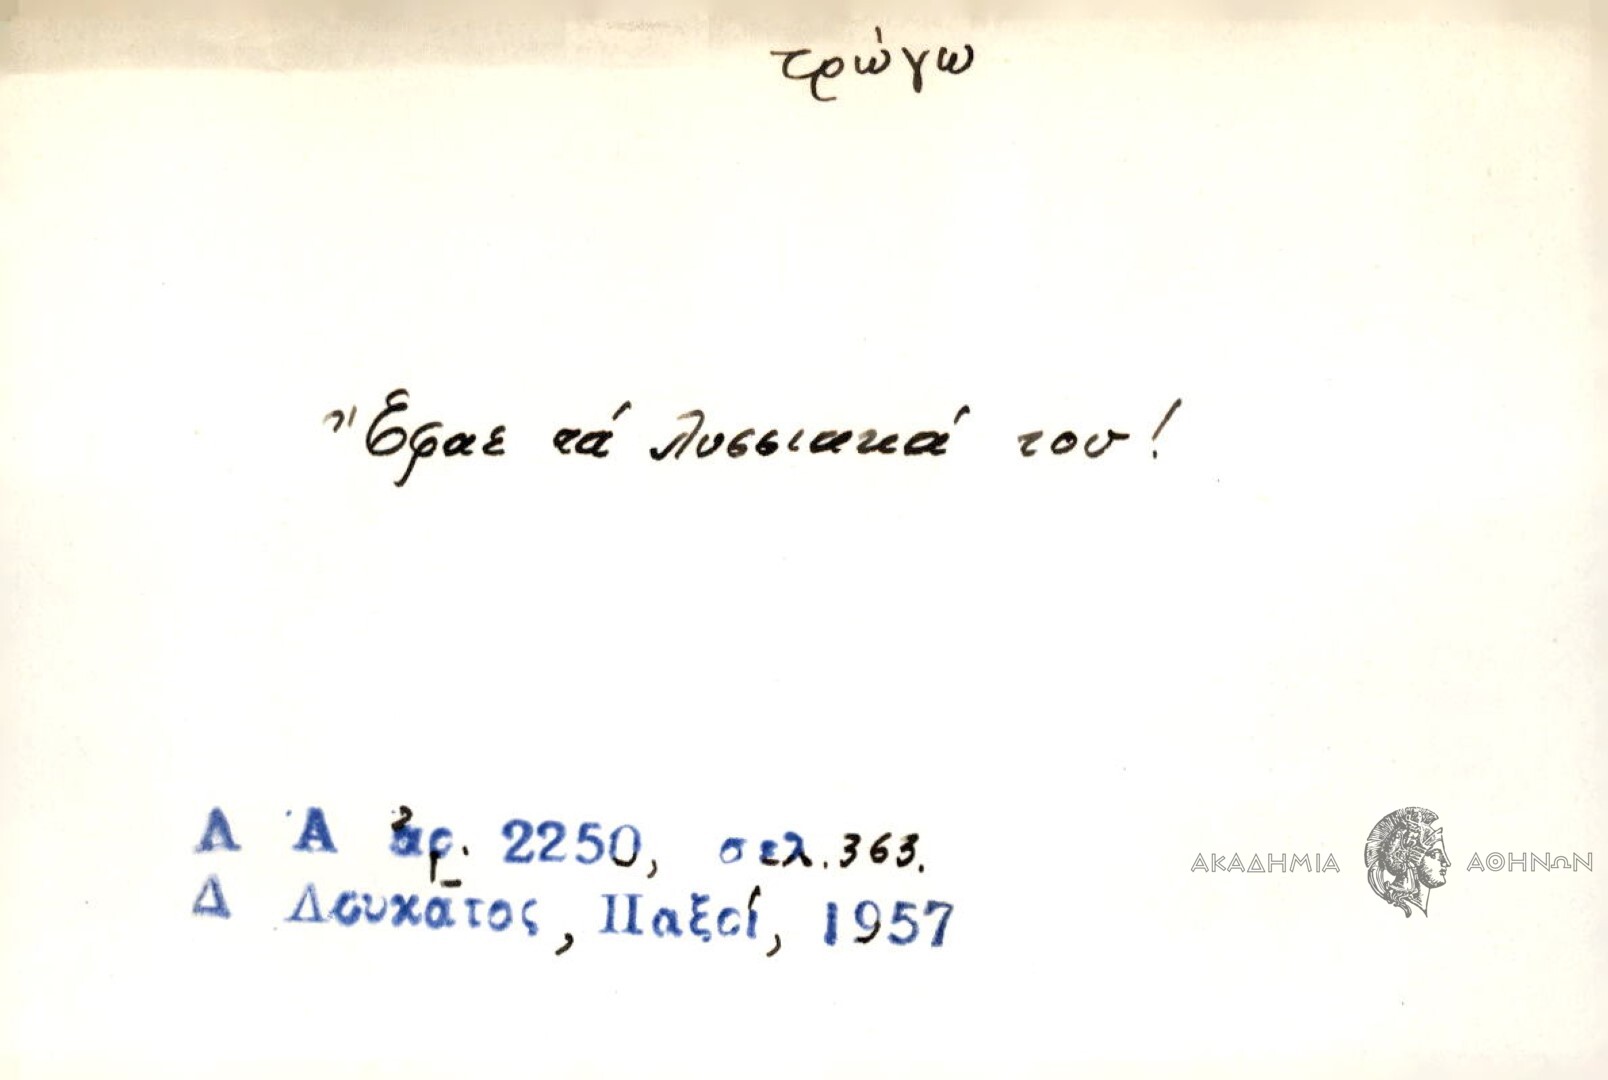 τρώγω
Ἔφαε τά λυσσιακά του!
Λ Α ἀρ. 2250, σελ. 363.
Δ Λουκᾶτος, Παξοί, 1957
ΑΚΑΔΗΜΙΑ ΑΘΗΝΩΝ